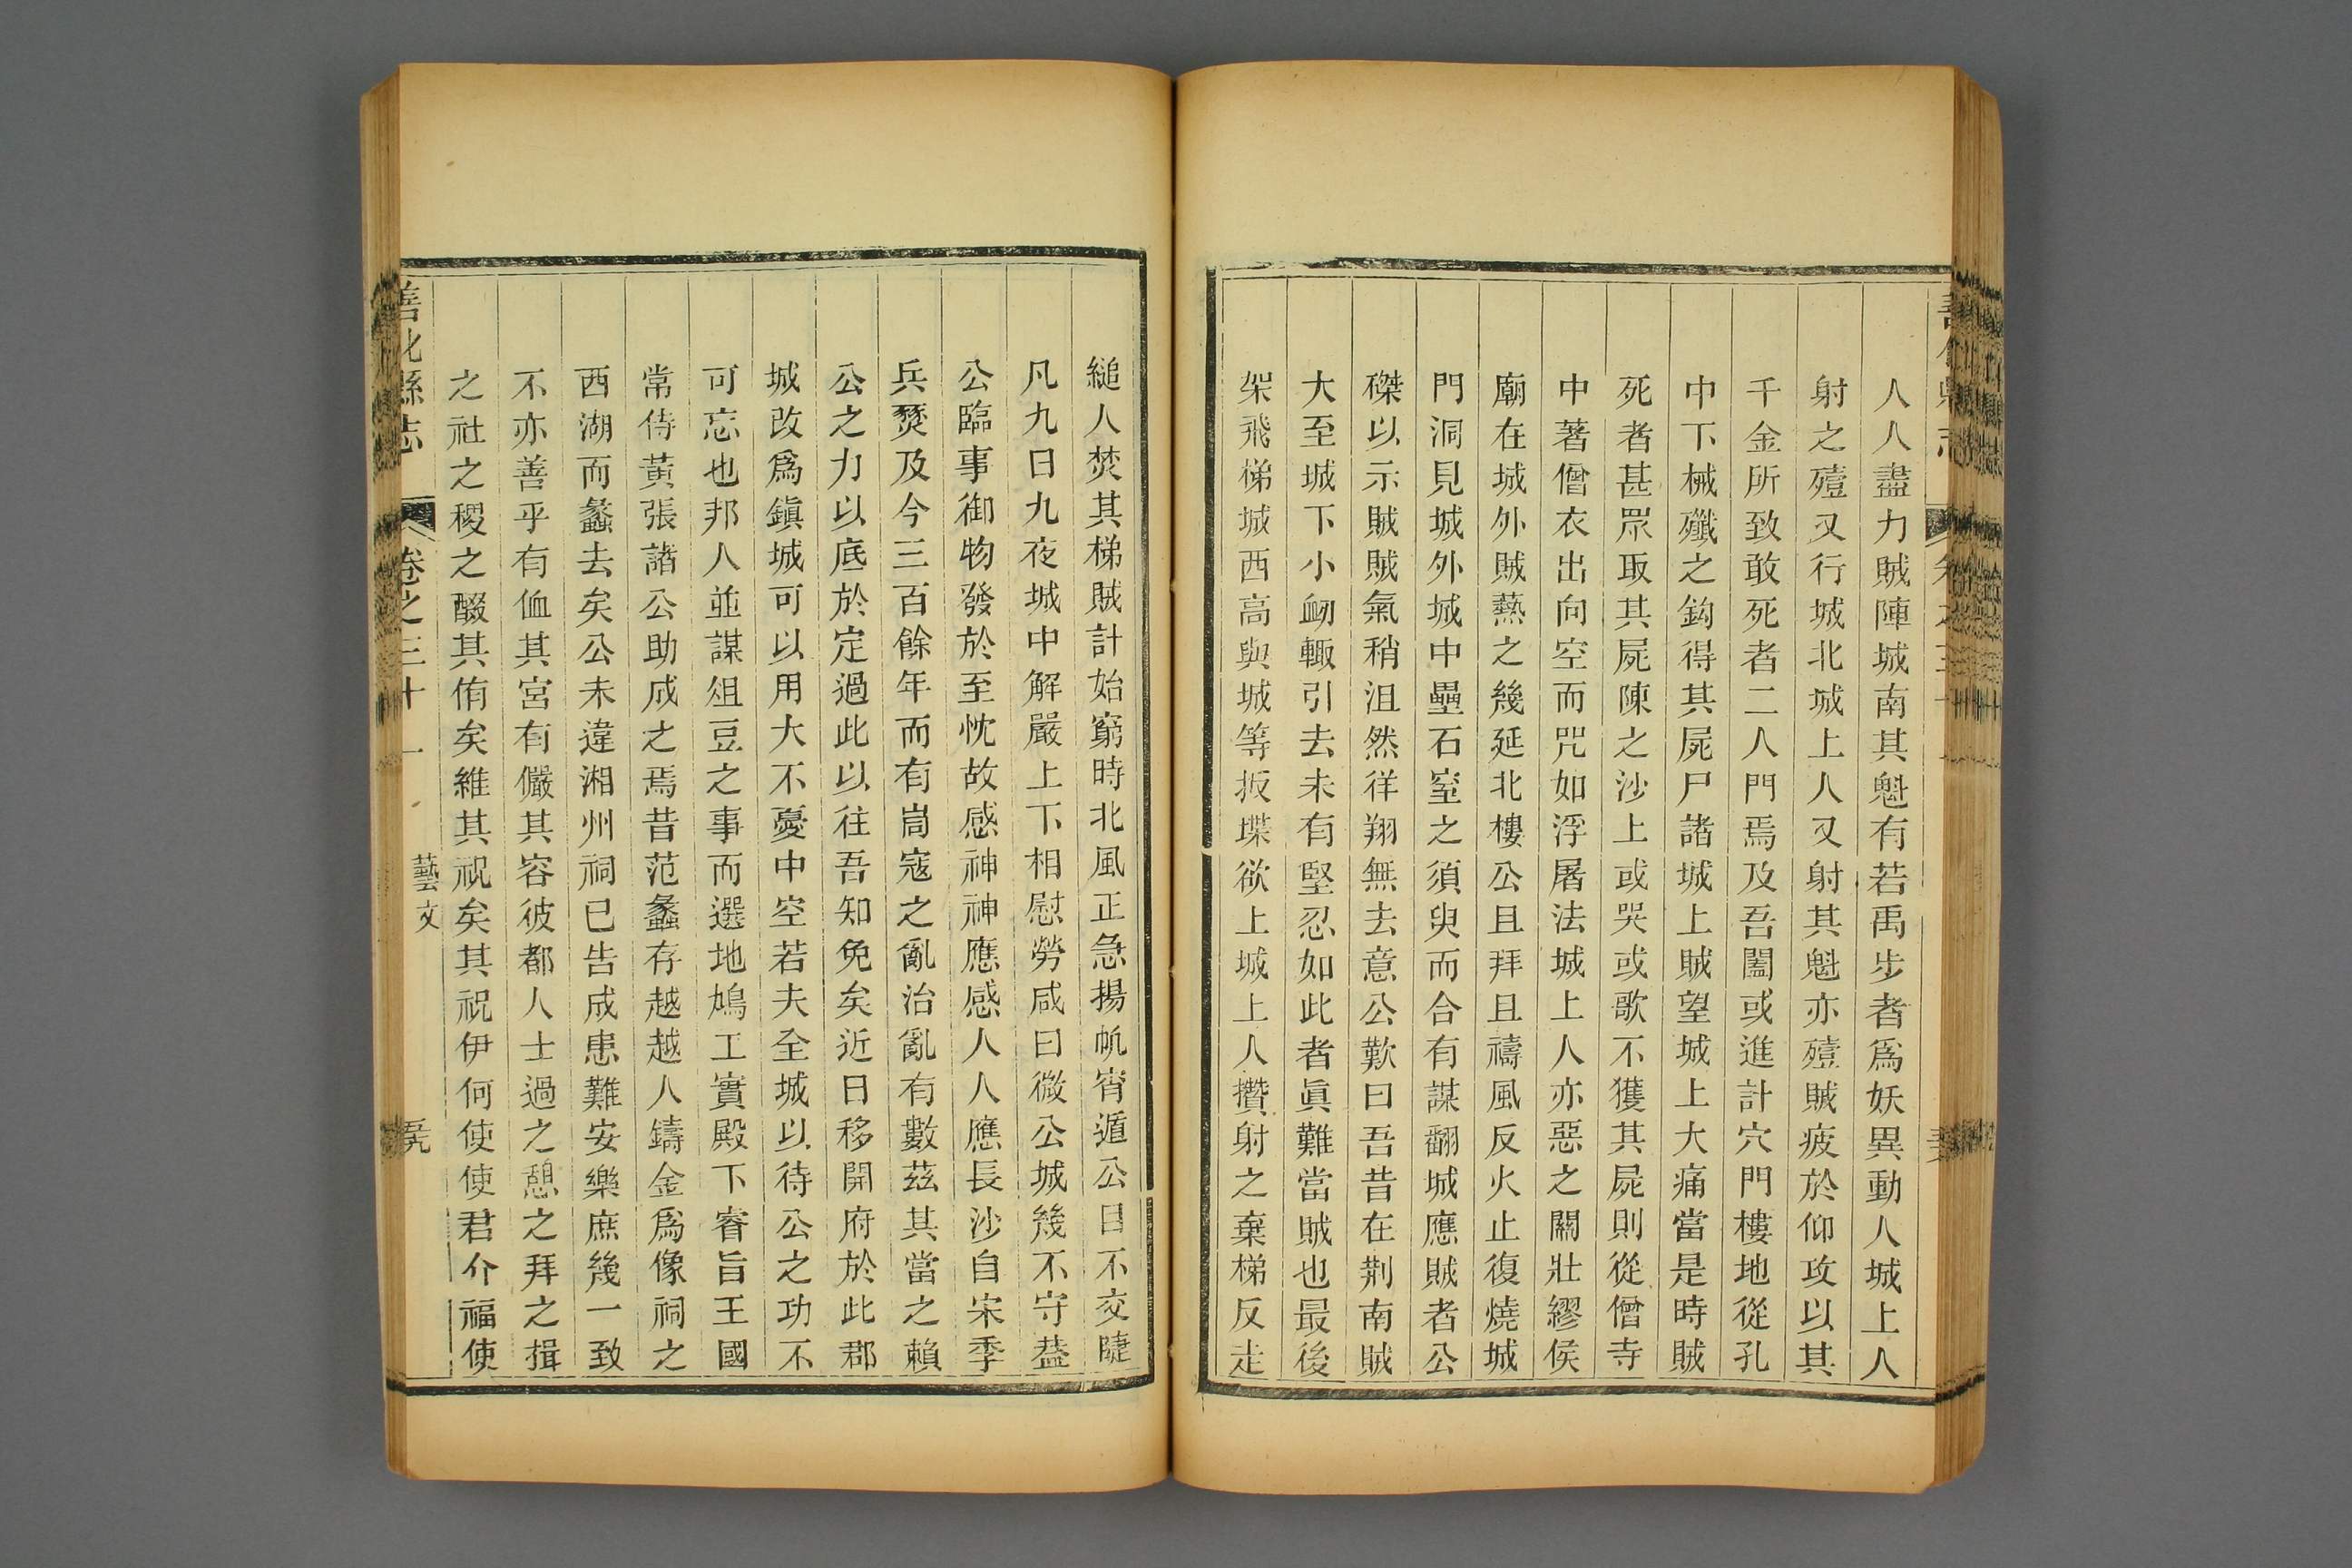 人人盡力賊陣城南其魁有若禹步者爲妖異動人城上人
射之殪又行城北城上人又射其魁亦殪賊疲於仰攻以其
千金所致敢死者二人門焉及吾闔或進計穴門樓地從孔
中下械殲之鈎得其屍尸諸城上賊望城上大痛當是時賊
死者甚眾取其屍陳之沙上或哭或歌不獲其屍則從僧寺
中著僧衣出向空而咒如浮屠法城上人亦惡之關壯繆侯
廟在城外賊爇之幾延北樓公且拜且禱風反火止復燒城
門洞見城外城中壘石窒之須臾而合有謀翻城應賊者公
磔以示賊賊氣稍沮然徉翔無去意公歎曰吾昔在荆南賊
大至城下小衂輙引去未有堅忍如此者眞難當賊也最後
架飛梯城西高與城等扳堞欲上城上人攢射之棄梯反走
縋人焚其梯賊計始窮時北風正急揚帆宵遁公目不交睫
凡九日九夜城中解嚴上下相慰勞咸曰微公城幾不守葢
公臨事御物發於至忱故感神神應感人人應長沙自宋季
兵燹及今三百餘年而有崗寇之亂治亂有數茲其當之賴
公之力以底於定過此以往吾知免矣近日移開府於此郡
城改爲鎮城可以用大不憂中空若夫全城以待公之功不
可忘也邦人並謀俎豆之事而選地鳩工實殿下睿旨王國
常侍黃張諸公助成之焉昔范蠡存越越人鑄金爲像祠之
西湖而蠡去矣公未違湘州祠已告成患難安樂庶幾一致
不亦善乎有侐其宮有儼其容彼都人士過之憩之拜之揖
之社之稷之醊其侑矣維其祝矣其祝伊何使使君介福使
善化縣志
卷之三十一
藝文